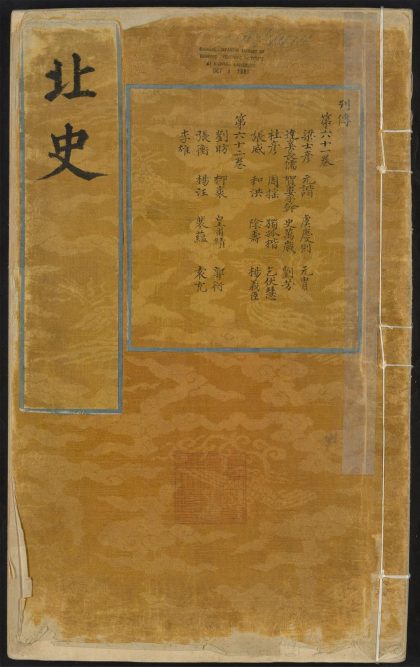 CHINESE-JAPANESE LIBRARY OF
HARVARD-YENCHING INSTITUTE
AT HARVARD UNIVERSITY
列傳
第六十一卷
梁士彥 元諧 虞慶則 元胄
達奚長儒 賀婁子幹 史萬歲 劉芳
杜彥 周搖 獨孤楷 乞伏慧
張威 和洪 陰壽 楊義臣
第六十二卷
劉昉 柳裘 皇甫績 郭衍
張衡 楊汪 裴蘊 袁充
李雄
北史